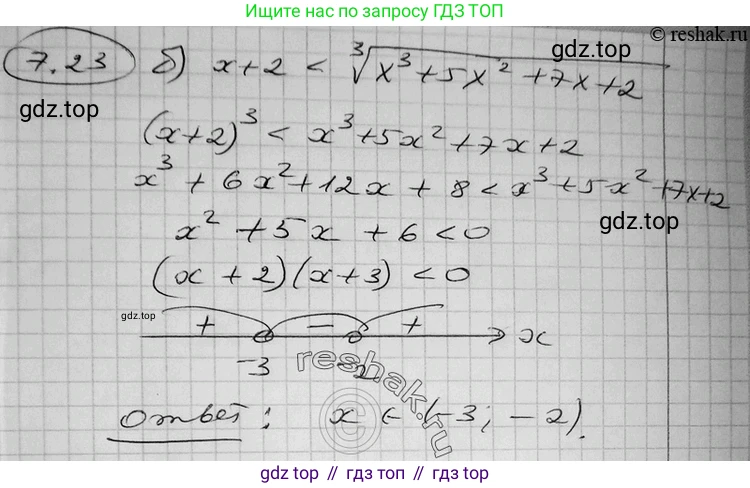 Ищите нас по запросу ГДЗ ТОП
© reshak.ru
7.23 б) x+2 < ∛(x³+5x²+7x+2)
gdz.top
gdz.top
(x+2)³ < x³+5x²+7x+2
x³ + 6x²+12x + 8 < x³+5x²+7x+2
gdz.top
x² + 5x + 6 < 0
(x + 2)(x+3) < 0
gdz.top
+ − + x
−3 −2
reshak.ru
©
Ответ: x ∈ (−3; −2).
gdz.top // гдз топ // гдз.top